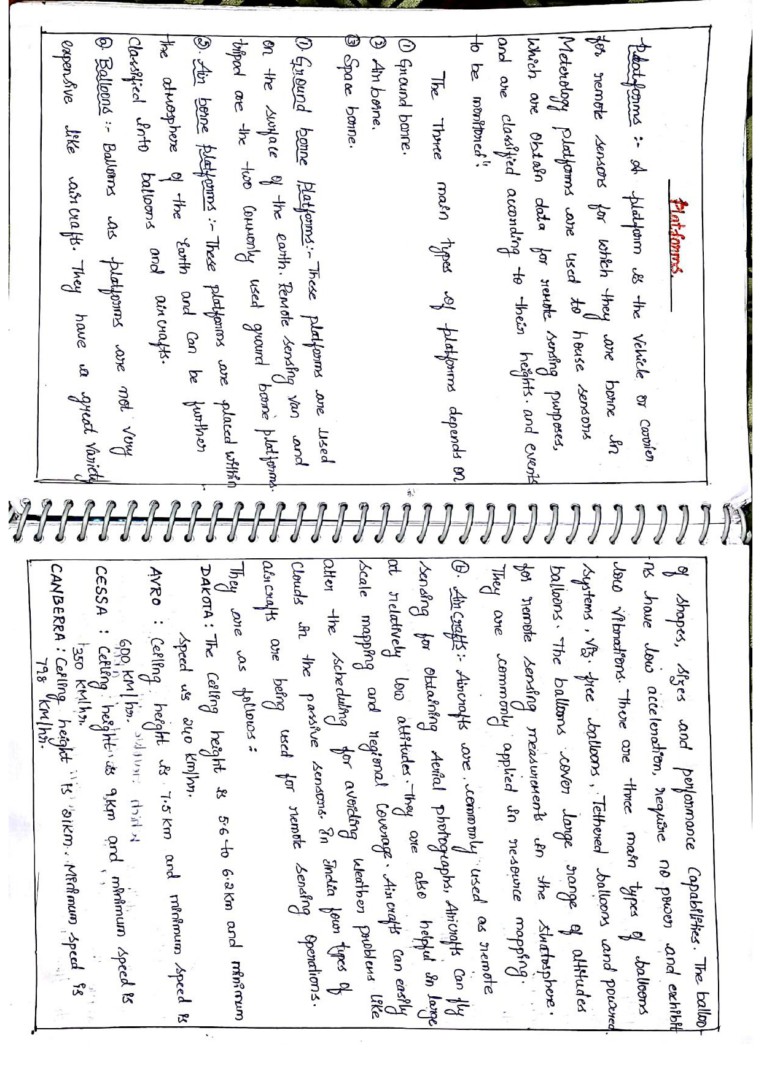 Platforms.
Platforms :- A platform is the vehicle or carrier
for remote sensors for which they are borne in
Meterology platforms are used to house sensors
which are obtain data for remote sensing purposes,
and are classified according to their heights. and events
to be monitored".
The three main types of platforms depends on
① Ground borne.
② Air borne.
③ Space borne.
① Ground borne platforms:- These platforms are used
on the surface of the earth. Remote sensing van and
tripod are the two commonly used ground borne platforms.
②. Air borne platforms :- These platforms are placed within
the atmosphere of the Earth and can be further
classified into balloons and aircrafts.
ⓐ Balloons :- Balloons as platforms are not very
expensive like aircrafts. They have a great variety
of shapes, sizes and performance capabilities. The balloo-
ns have low acceleration, require no power and exhibit
low vibrations. There are three main types of balloons
systems, viz. free balloons, Tethered balloons and powered
balloons. The balloons cover large range of altitudes
for remote sensing measurements in the stratosphere.
They are commonly applied in resource mapping.
ⓑ. Aircrafts :- Aircrafts are commonly used as remote
sensing for obtaining Aerial photographs. Aircrafts can fly
at relatively low altitudes. They are also helpful in large
scale mapping and regional coverage. Aircrafts can easily
alter the scheduling for avoiding weather problems like
clouds in the passive sensors. In India four types of
aircrafts are being used for remote sensing operations.
They are as follows :
DAKOTA : The ceiling height is 5.6 to 6.2 km and minimum
speed is 240 km/hr.
AVRO : Ceiling height is 7.5 km and minimum speed is
600 km/hr.
CESSA : Ceiling height is 9km and minimum speed is
350 km/hr.
CANBERRA : Ceiling height is 21km. Minimum speed is
798 km/hr.